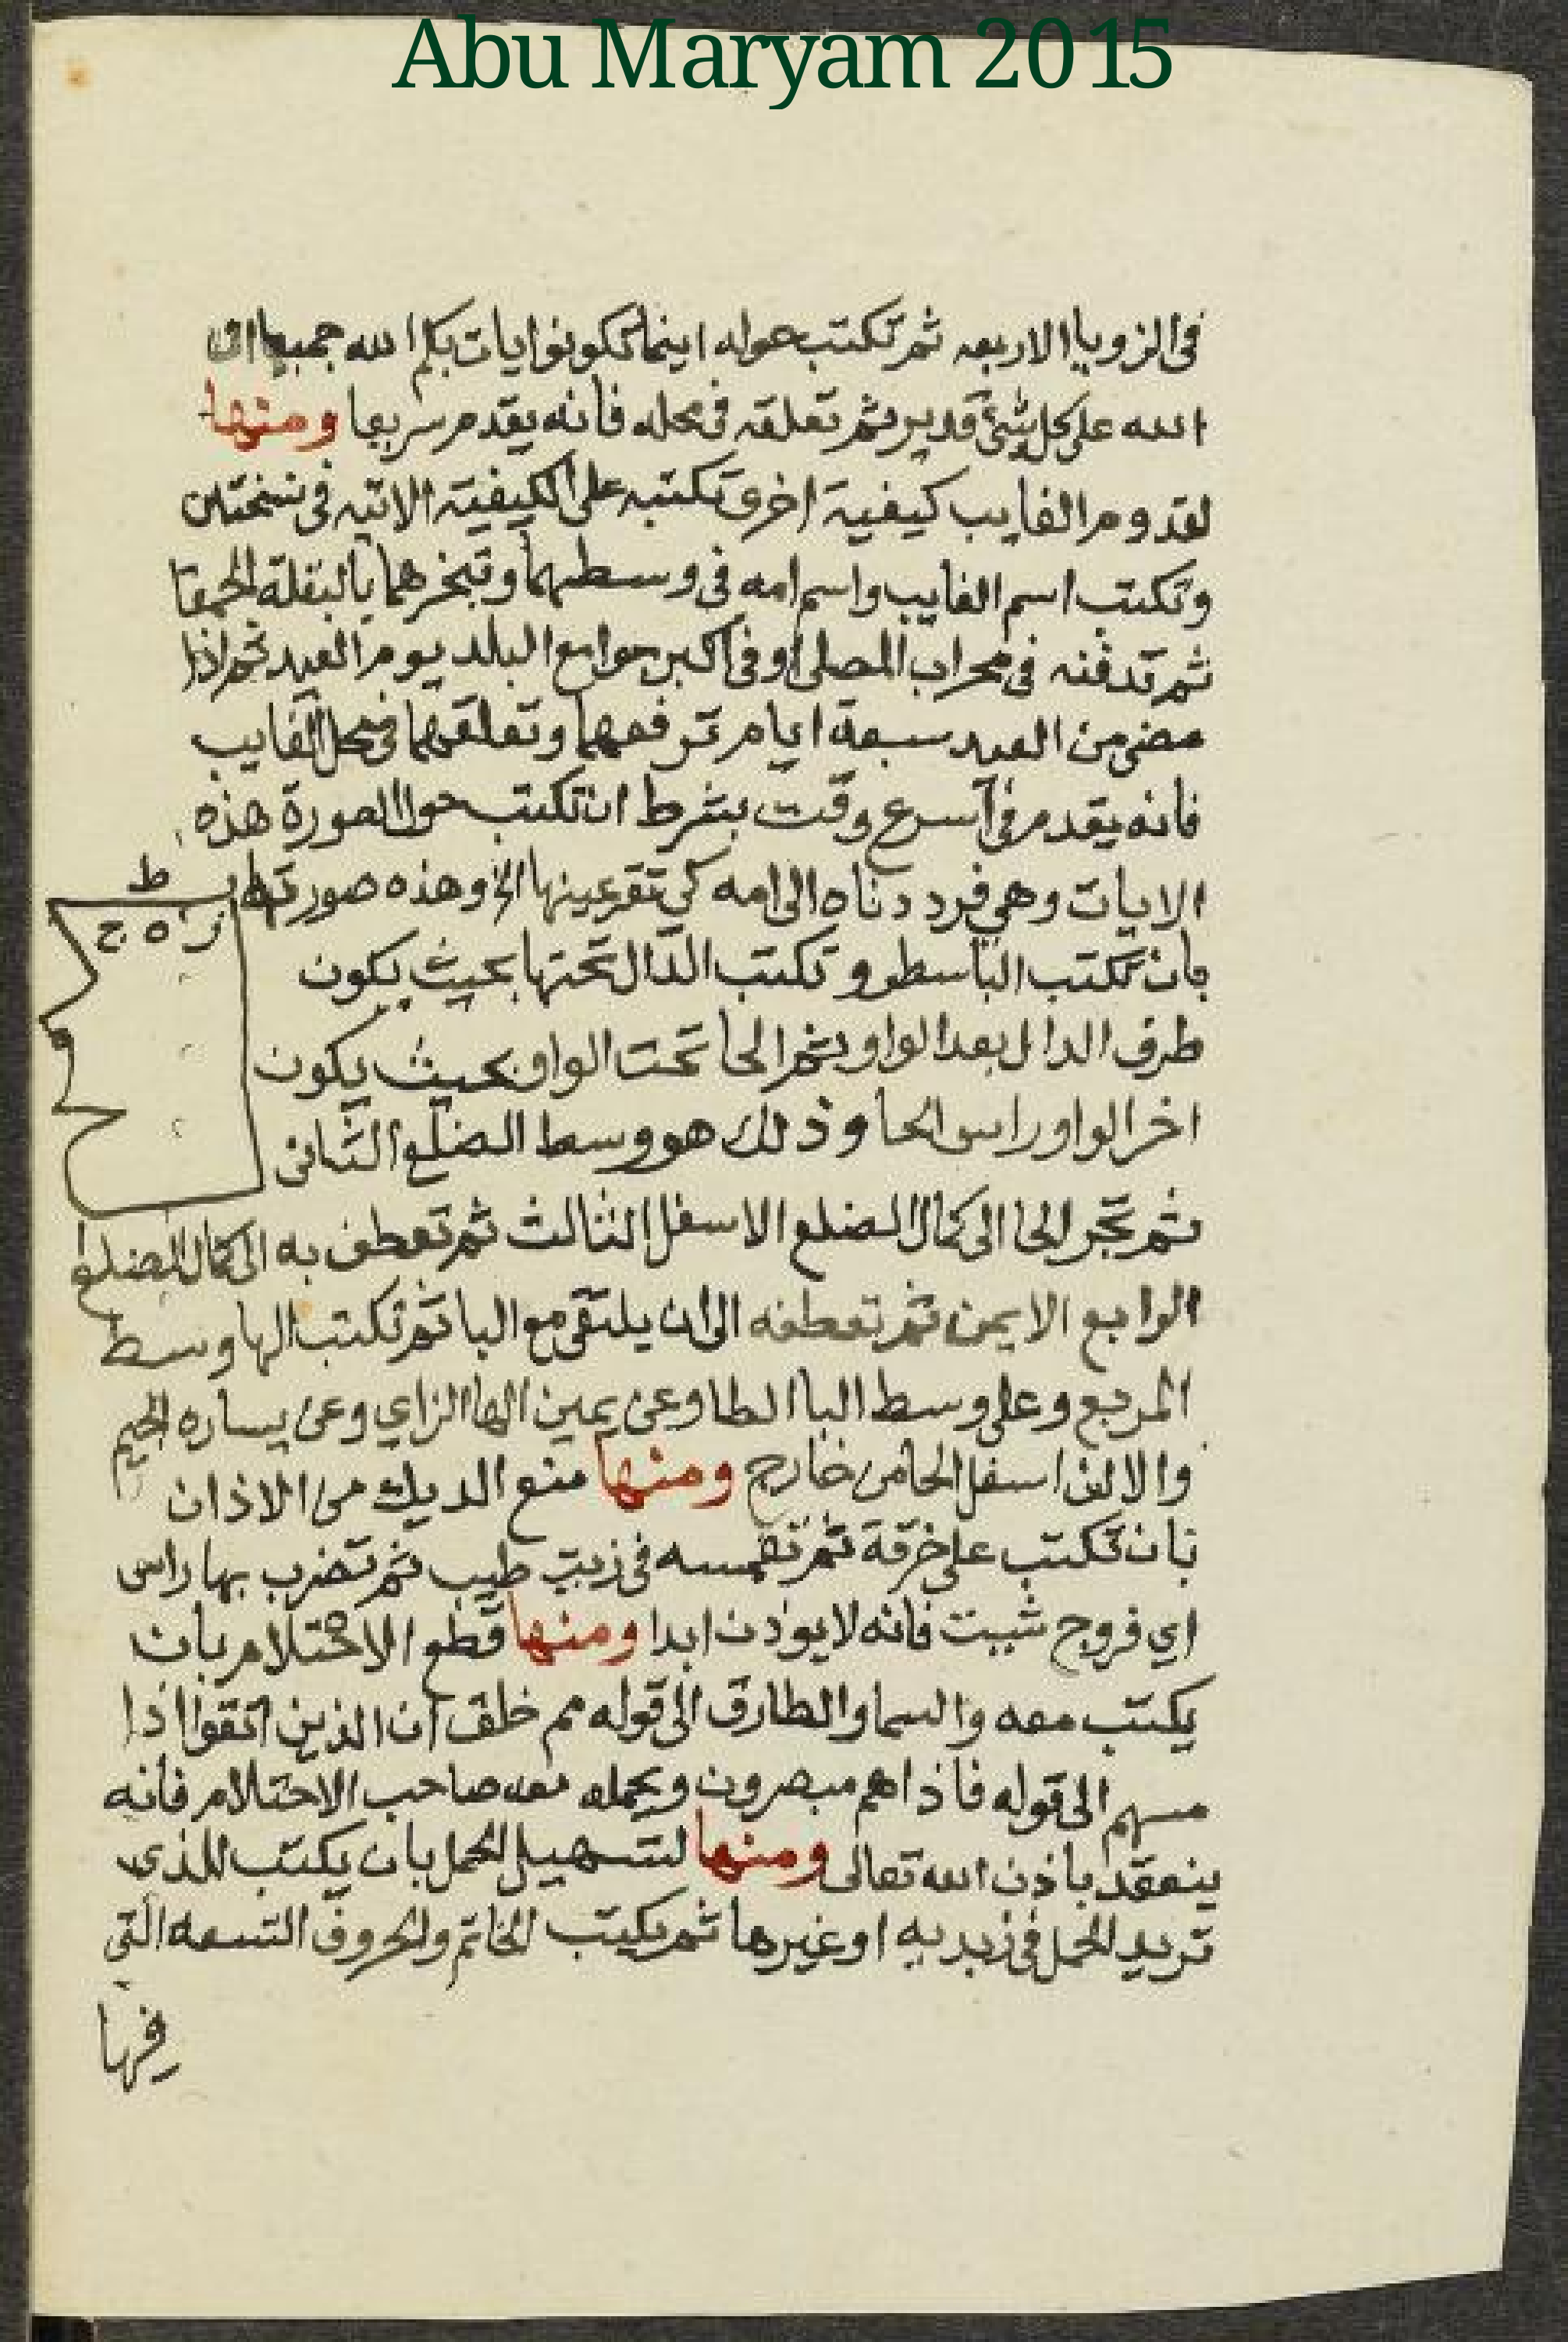 Abu Maryam 2015
فى الزويا الاربعه ثم تكتب حوله اينما تكونوا يات بكم الله جميعا ان
الله على كل شئ قدير ثم تعلقه فى محله فانه يقدم سريعا ومنها
لقدوم الغايب كيفية اخرى تكتبه على الكيفية الاتيه فى نسختين
وتكتب اسم الغايب واسم امه فى وسطهما وتبخرهما بالبقلة الحمقا
ثم تدفنه فى محراب المصلى او فى اكبر جوامع البلد يوم العيد ثم اذا
مضى من العيد سبعة ايام ترفعهما وتعلقهما فى محل الغايب
فانه يقدم فى اسرع وقت بشرط ان تكتب حول الصورة هذه
الايات وهي فرددناه الى امه كي تقر عينها الخ وهذه صورته
ط
ز ه ج
بان تكتب الباسطو وتكتب الدال تحتها بحيث يكون
طرف الدال بعد الواو ثم الحا تحت الواو بحيث يكون
اخر الواو راس الحا وذلك هو وسط الضلع الثانى
ثم تجر الحا الى كمال الضلع الاسفل الثالث ثم تعطف به الى كمال الضلع
الرابع الايمن ثم تعطفه الى ان يلتقى مع البا ثم تكتب الها وسط
المربع وعلى وسط البا الطا وعن يمين الها الزاي وعن يساره الجيم
والالف اسفل الخامس خارج ومنها منع الديك من الاذان
بان تكتب على خرقة ثم تغمسه فى زيت طيب ثم تضرب بها راس
اي فروج شيت فانه لا يوذن ابدا ومنها قطع الاحتلام بان
يكتب معه والسما والطارق الى قوله مم خلق ان الذين اتقوا اذا
مسهم الى قوله فاذا هم مبصرون ويحمله معه صاحب الاحتلام فانه
ينعقد باذن الله تعالى ومنها لتسهيل الحمل بان يكتب للذى
تريد الحمل فى زبديه او غيرها ثم يكتب الخاتم والحروف التسعه التى
فيها